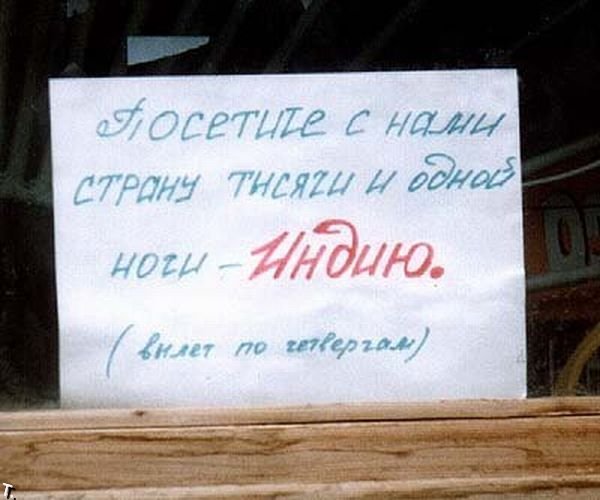 Посетите с нами
страну тысячи и одной
ночи – Индию.
(вылет по четвергам)
Т.